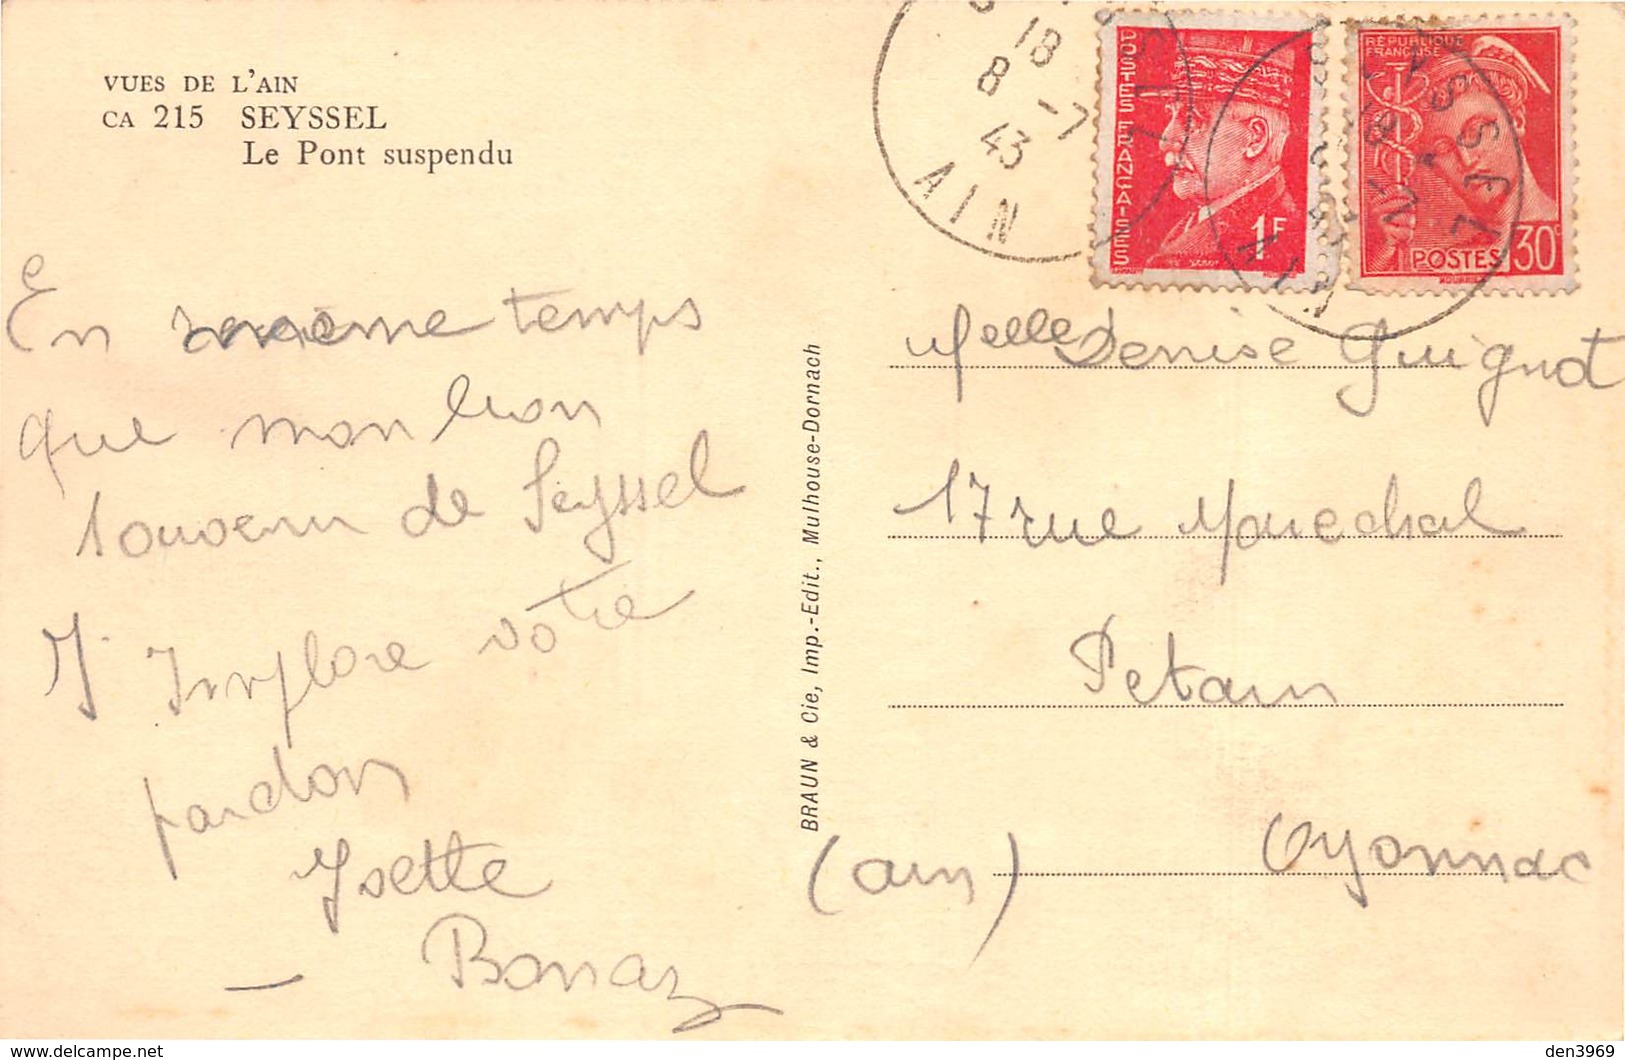 VUES DE L'AIN
CA 215 SEYSSEL
Le Pont suspendu
18
8 -7
43
AIN
POSTES FRANÇAISES
1F
RÉPUBLIQUE
FRANÇAISE
POSTES 30c
En même temps
que mon bon
souvenir de Seyssel
J'implore votre
pardon
Josette
Bonaz
BRAUN & Cie, Imp.-Edit., Mulhouse-Dornach
Melle Denise Guignot
17 rue Marechal
Petain
Oyonnac
(ain)
den3969